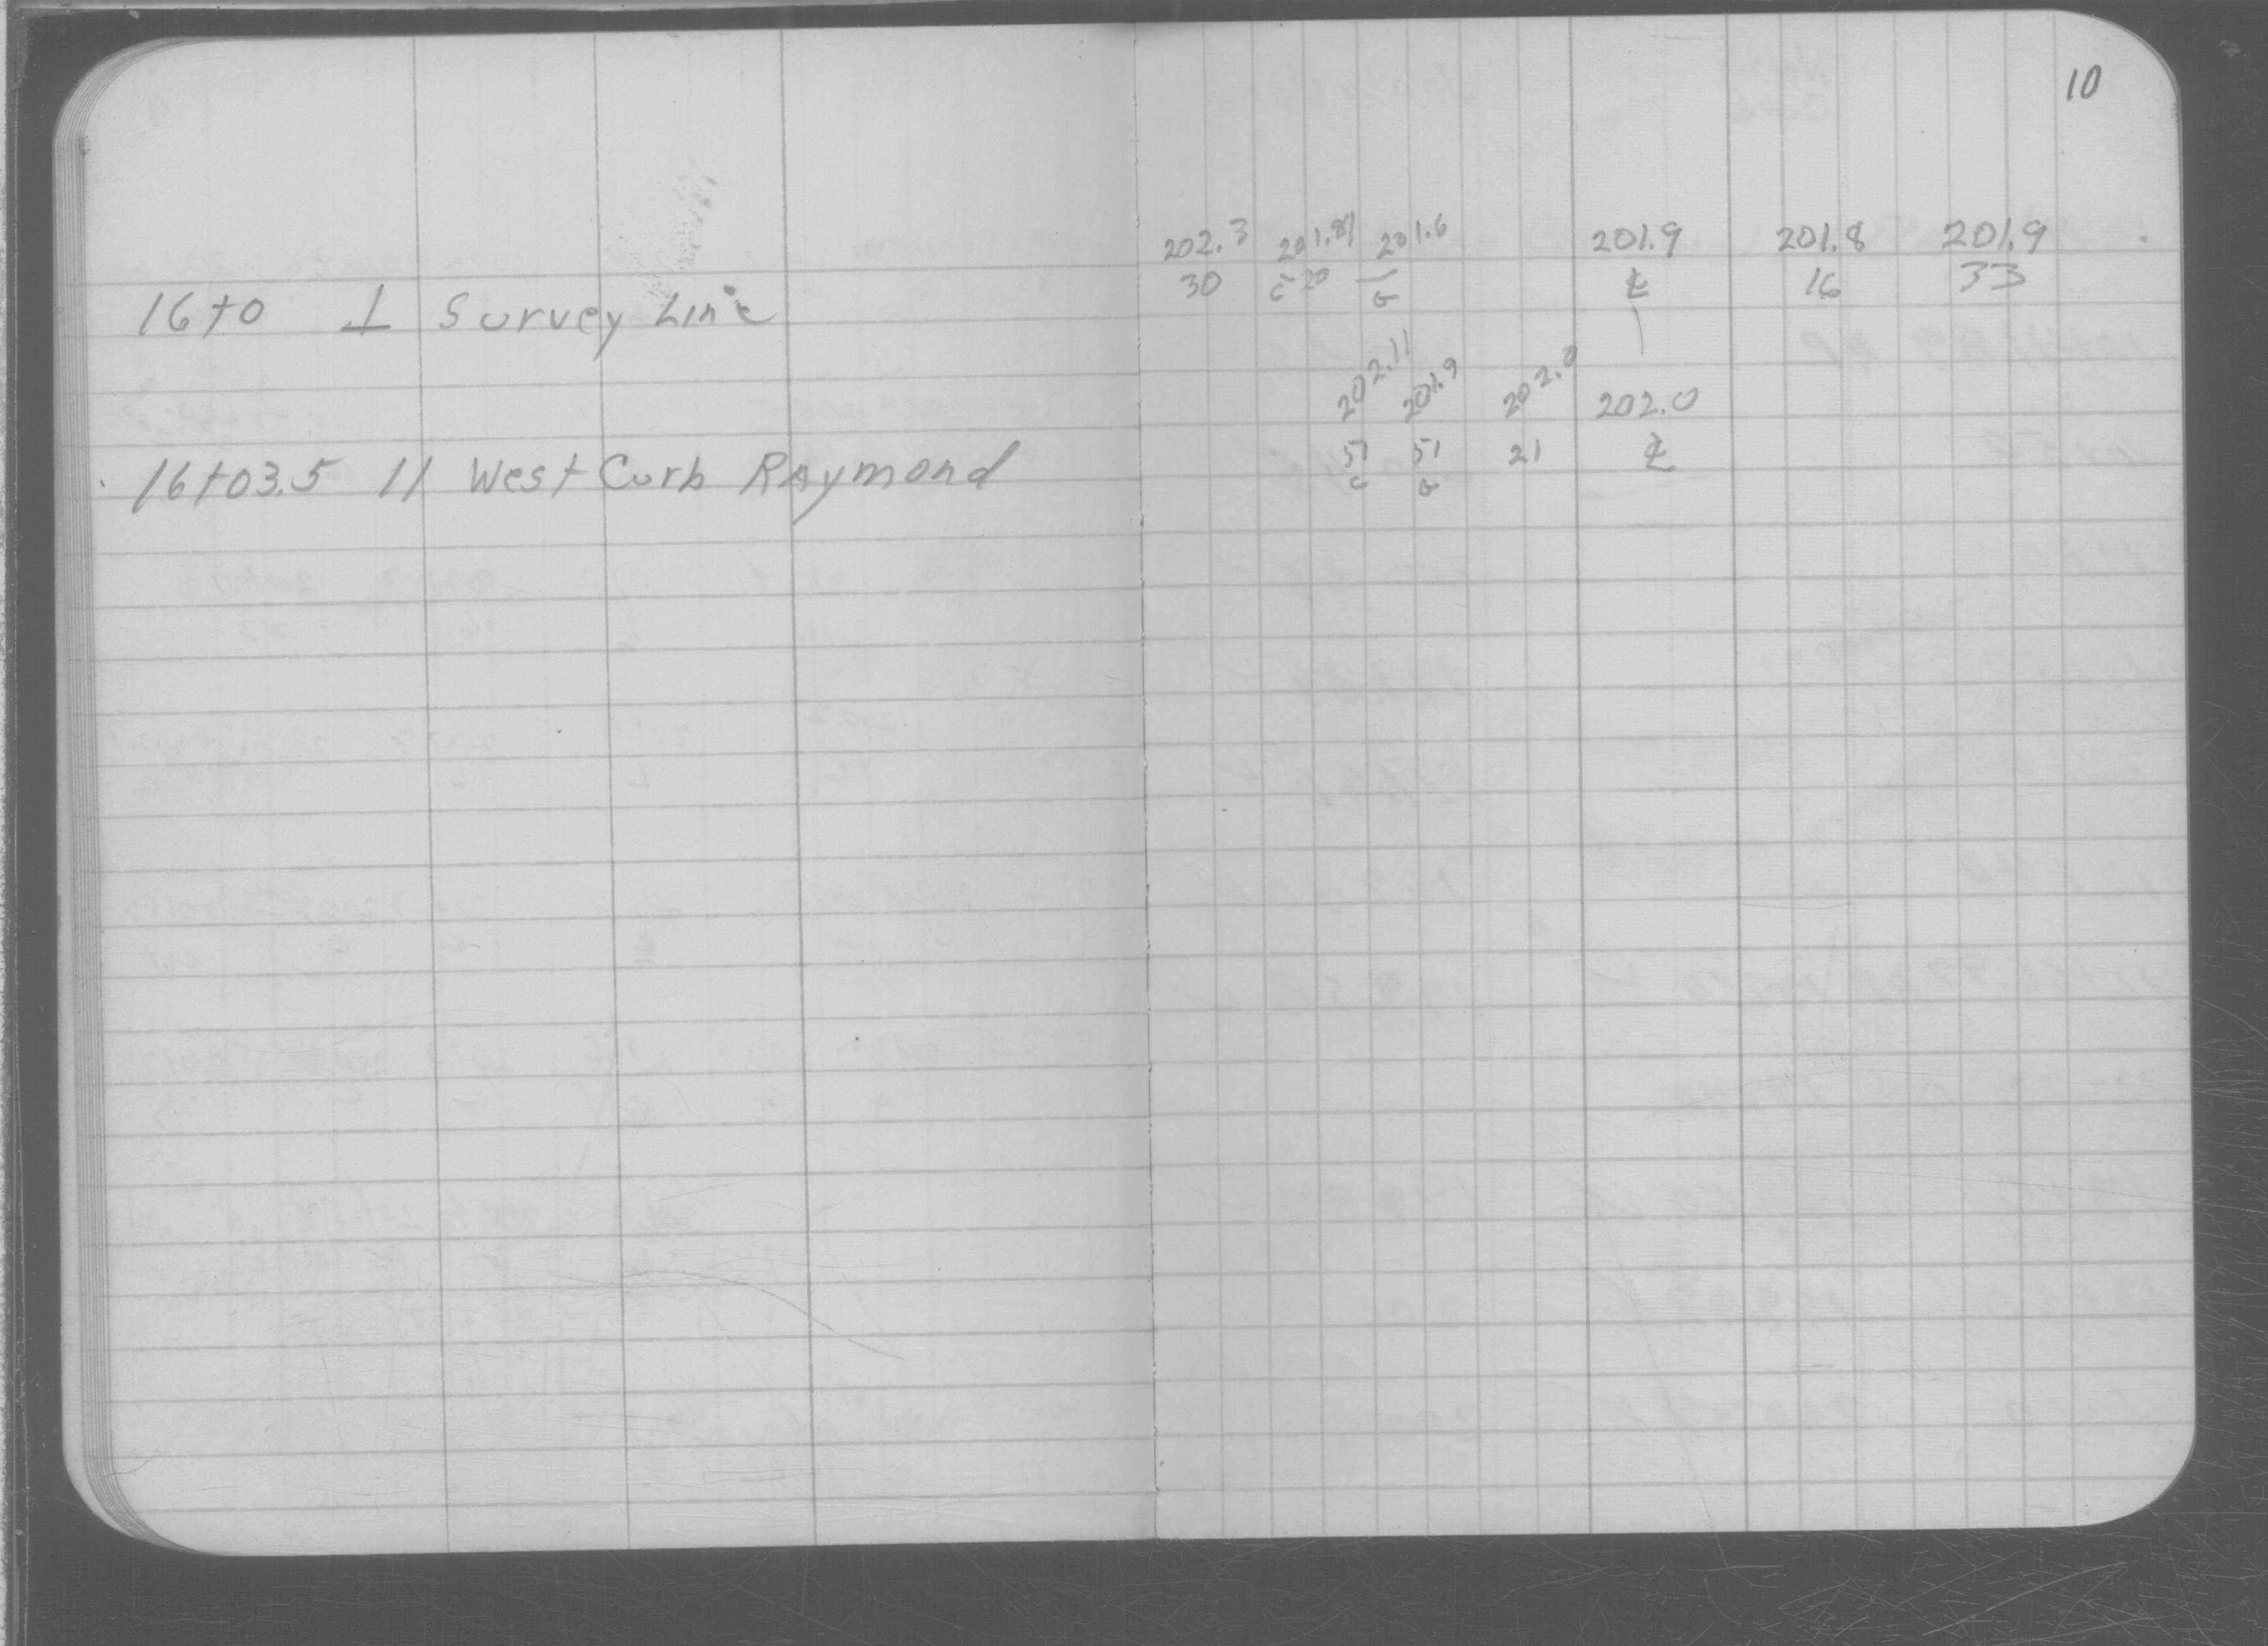 10
202.3 201.81 201.6 201.9 201.8 201.9
30 C 20 G ℄ 16 33
16+0 ⊥ Survey Line
202.11 201.9 202.0 202.0
51 51 21 ℄
C G
16+03.5 11 West Curb Raymond